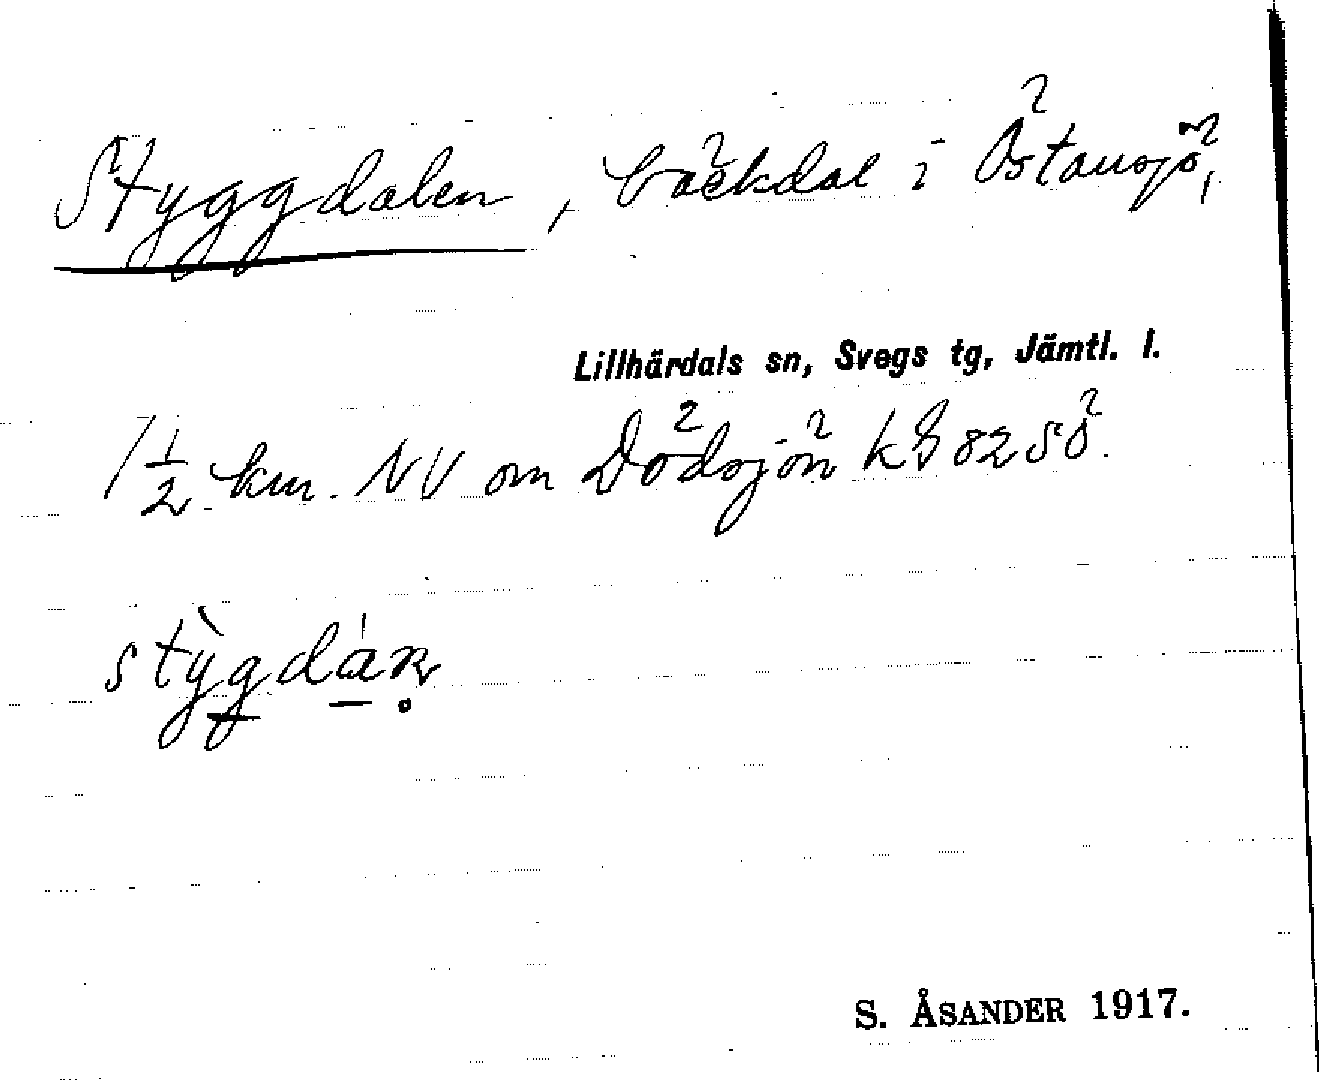 Styggdalen, bäckdal i Östansjö,
Lillhärdals sn, Svegs tg, Jämtl. l.
1½ km. NV om Dödsjön kg 82 SÖ.
stỳgdán̥
S. ÅSANDER 1917.